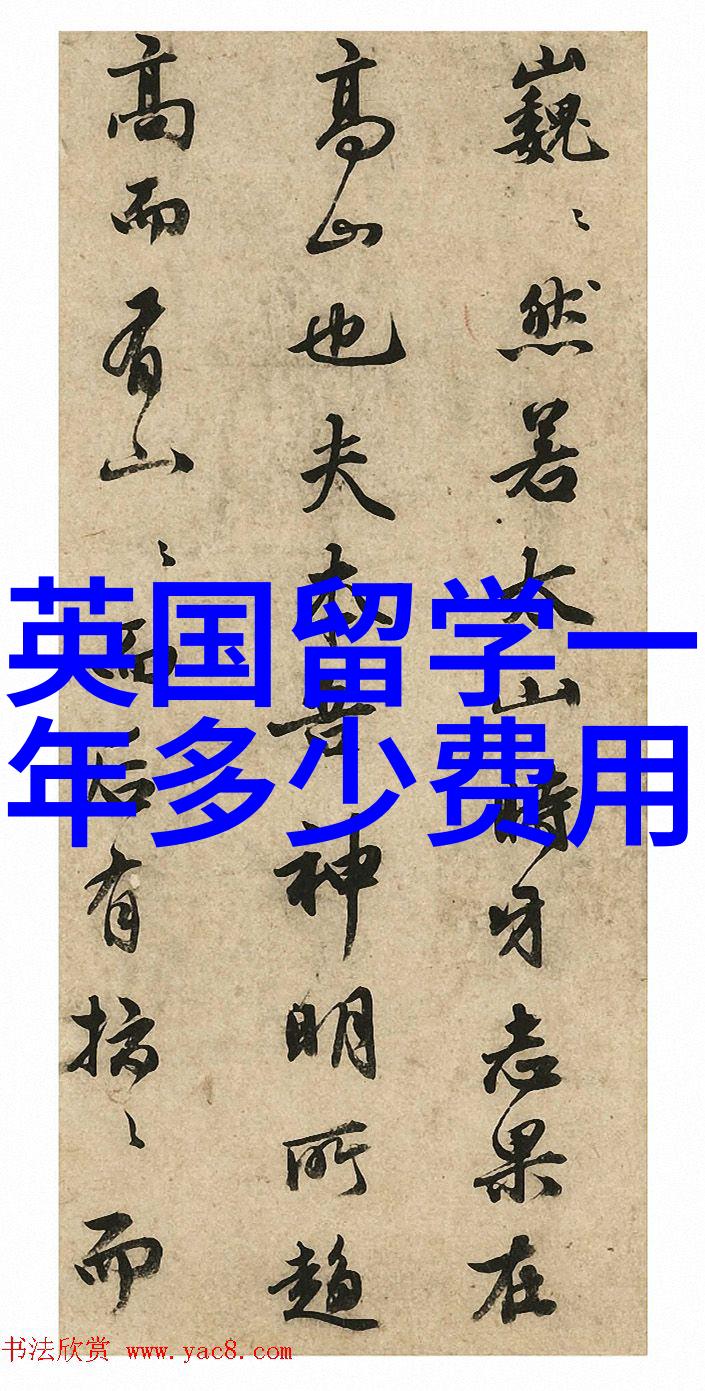 巍〻然若太山時牙志果在
高山也夫神明所趨
高而有山〻而后有〻而
英国留学一
年多少费用
书法欣赏 www.yac8.com